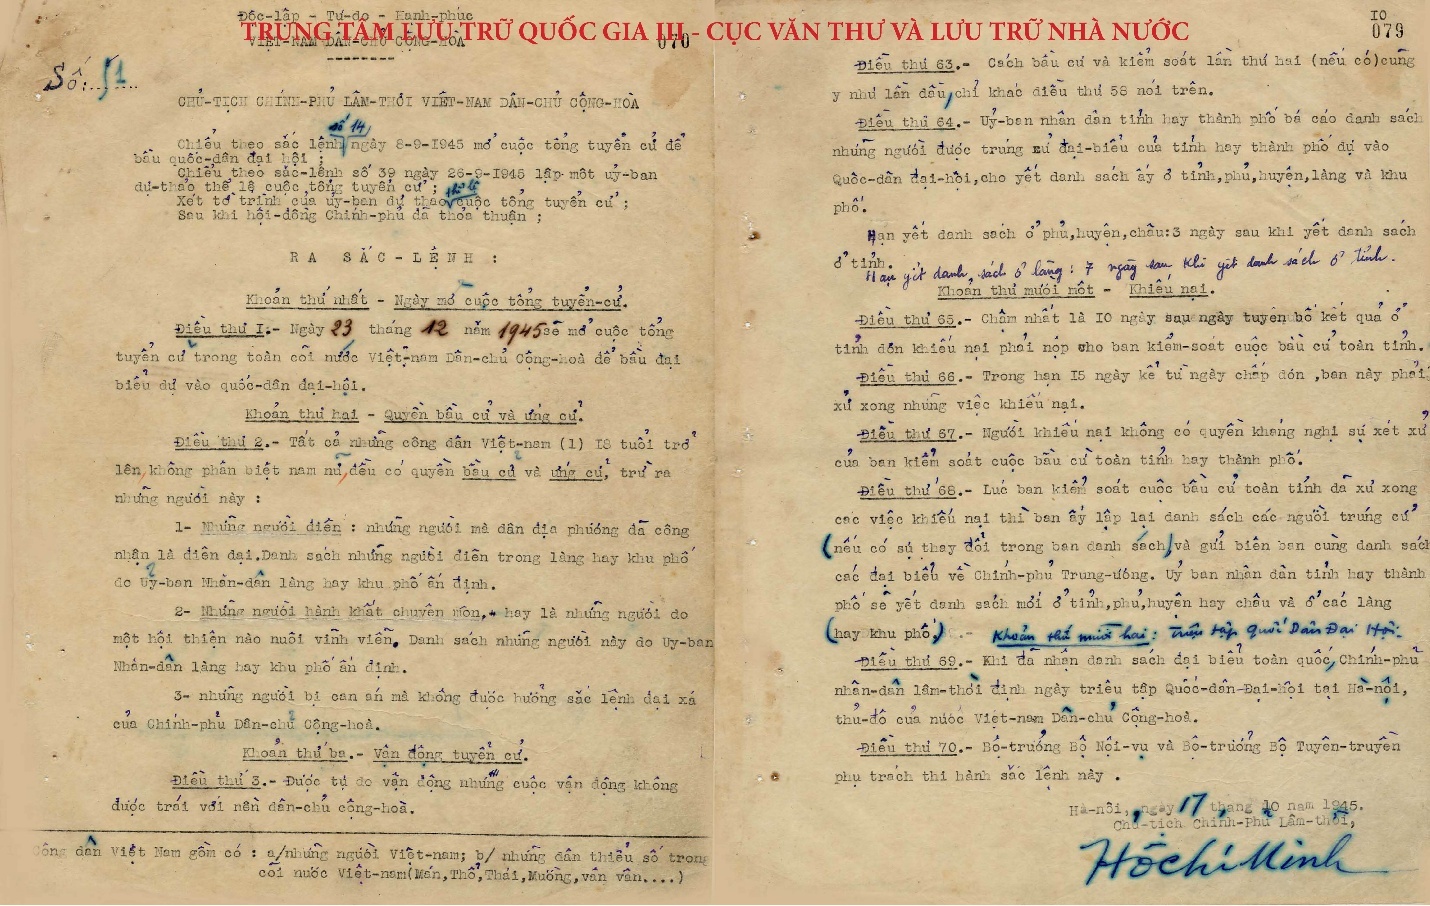 TRUNG TÂM LƯU TRỮ QUỐC GIA III - CỤC VĂN THƯ VÀ LƯU TRỮ NHÀ NƯỚC
Độc-lập - Tự-do - Hạnh-phúc
VIỆT-NAM DÂN-CHỦ CỘNG-HÒA
070
Số:.51....
CHỦ-TỊCH CHÍNH-PHỦ LÂM-THỜI VIỆT-NAM DÂN-CHỦ CỘNG-HÒA
số 14,
Chiểu theo sắc lệnh ngày 8-9-1945 mở cuộc tổng tuyển cử để
bầu quốc-dân đại hội ;
Chiểu theo sắc-lệnh số 39 ngày 26-9-1945 lập một uỷ-ban
dự-thảo thể lệ cuộc tổng tuyển cử ;
thể lệ
Xét tờ trình của uỷ-ban dự thảo cuộc tổng tuyển cử ;
Sau khi hội-đồng Chính-phủ đã thỏa thuận ;
RA SẮC-LỆNH :
Khoản thứ nhất - Ngày mở cuộc tổng tuyển-cử.
Điều thứ I.- Ngày 23 tháng 12 năm 1945 sẽ mở cuộc tổng
tuyển cử trong toàn cõi nước Việt-nam Dân-chủ Cộng-hoà để bầu đại
biểu dự vào quốc-dân đại-hội.
Khoản thứ hai - Quyền bầu cử và ứng cử.
Điều thứ 2.- Tất cả những công dân Việt-nam (1) I8 tuổi trở
lên, không phân biệt nam nữ, đều có quyền bầu cử và ứng cử, trừ ra
những người này :
1- Những người điên : những người mà dân địa phương đã công
nhận là điên dại. Danh sách những người điên trong làng hay khu phố
do Uỷ-ban Nhân-dân làng hay khu phố ấn định.
2- Những người hành khất chuyên môn, hay là những người do
một hội thiện nào nuôi vĩnh viễn. Danh sách những người này do Uy-ban
Nhân-dân làng hay khu phố ấn định.
3- những người bị can án mà không được hưởng sắc lệnh đại xá
của Chính-phủ Dân-chủ Cộng-hoà.
Khoản thứ ba.- Vận động tuyển cử.
Điều thứ 3.- Được tự do vận động những cuộc vận động không
được trái với nền dân-chủ cộng-hoà.
Công dân Việt Nam gồm có : a/những người Việt-nam; b/ những dân thiểu số trong
cõi nước Việt-nam(Mán,Thổ,Thái,Mường,vân vân....)
I0
079
Điều thứ 63.- Cách bầu cử và kiểm soát lần thứ hai (nếu có)cũng
y như lần đầu, chỉ khác điều thứ 58 nói trên.
Điều thứ 64.- Uỷ-ban nhân dân tỉnh hay thành phố bá cáo danh sách
những người được trúng cử đại-biểu của tỉnh hay thành phố dự vào
Quốc-dân đại-hội,cho yết danh sách ấy ở tỉnh,phủ,huyện,làng và khu
phố.
Hạn yết danh sách ở phủ,huyện,châu:3 ngày sau khi yết danh sách
ở tỉnh.
Hạn yết danh sách ở làng : 7 ngày sau khi yết danh sách ở tỉnh.
Khoản thứ mười một - Khiếu nại.
Điều thứ 65.- Chậm nhất là I0 ngày sau ngày tuyên bố kết quả ở
tỉnh đơn khiếu nại phải nộp cho ban kiểm-soát cuộc bầu cử toàn tỉnh.
Điều thứ 66.- Trong hạn I5 ngày kể từ ngày chấp đơn ,ban này phải
xử xong những việc khiếu nại.
Điều thứ 67.- Người khiếu nại không có quyền kháng nghị sự xét xử
của ban kiểm soát cuộc bầu cử toàn tỉnh hay thành phố.
Điều thứ 68.- Lúc ban kiểm soát cuộc bầu cử toàn tỉnh đã xử xong
các việc khiếu nại thì ban ấy lập lại danh sách các người trúng cử
(nếu có sự thay đổi trong bản danh sách) và gửi biên bản cùng danh sách
các đại biểu về Chính-phủ Trung-ương. Uỷ ban nhân dân tỉnh hay thành
phố sẽ yết danh sách mới ở tỉnh,phủ,huyện hay châu và ở các làng
(hay khu phố.)
Khoản thứ mười hai : triệu tập Quốc Dân Đại Hội.
Điều thứ 69.- Khi đã nhận danh sách đại biểu toàn quốc, Chính-phủ
nhân-dân lâm-thời định ngày triệu tập Quốc-dân-Đại-hội tại Hà-nội,
thủ-đô của nước Việt-nam Dân-chủ Cộng-hoà.
Điều thứ 70.- Bộ-trưởng Bộ Nội-vụ và Bộ-trưởng Bộ Tuyên-truyền
phụ trách thi hành sắc lệnh này .
Hà-nội, ngày 17 tháng 10 năm 1945.
Chủ-tịch Chính-Phủ Lâm-thời,
Hồ Chí Minh